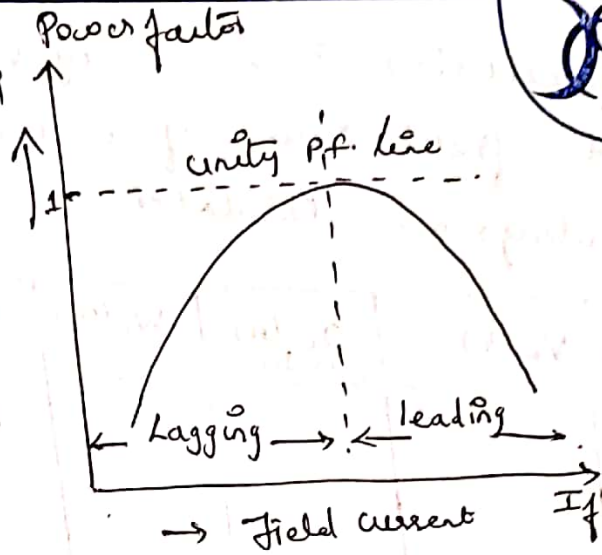 Power factor
unity p.f. line
1
Lagging
leading
→ Field current
If